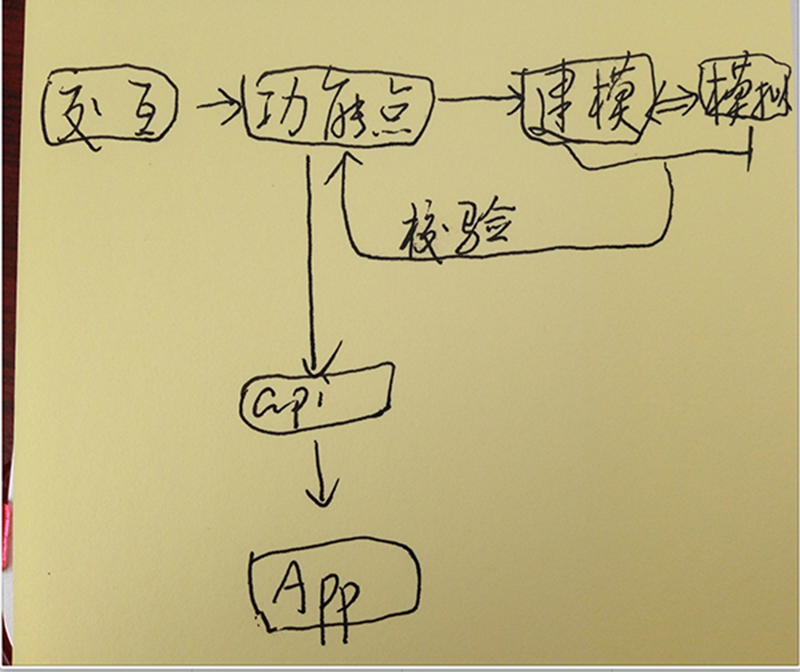 交互 功能点 建模 模拟
校验
api
App